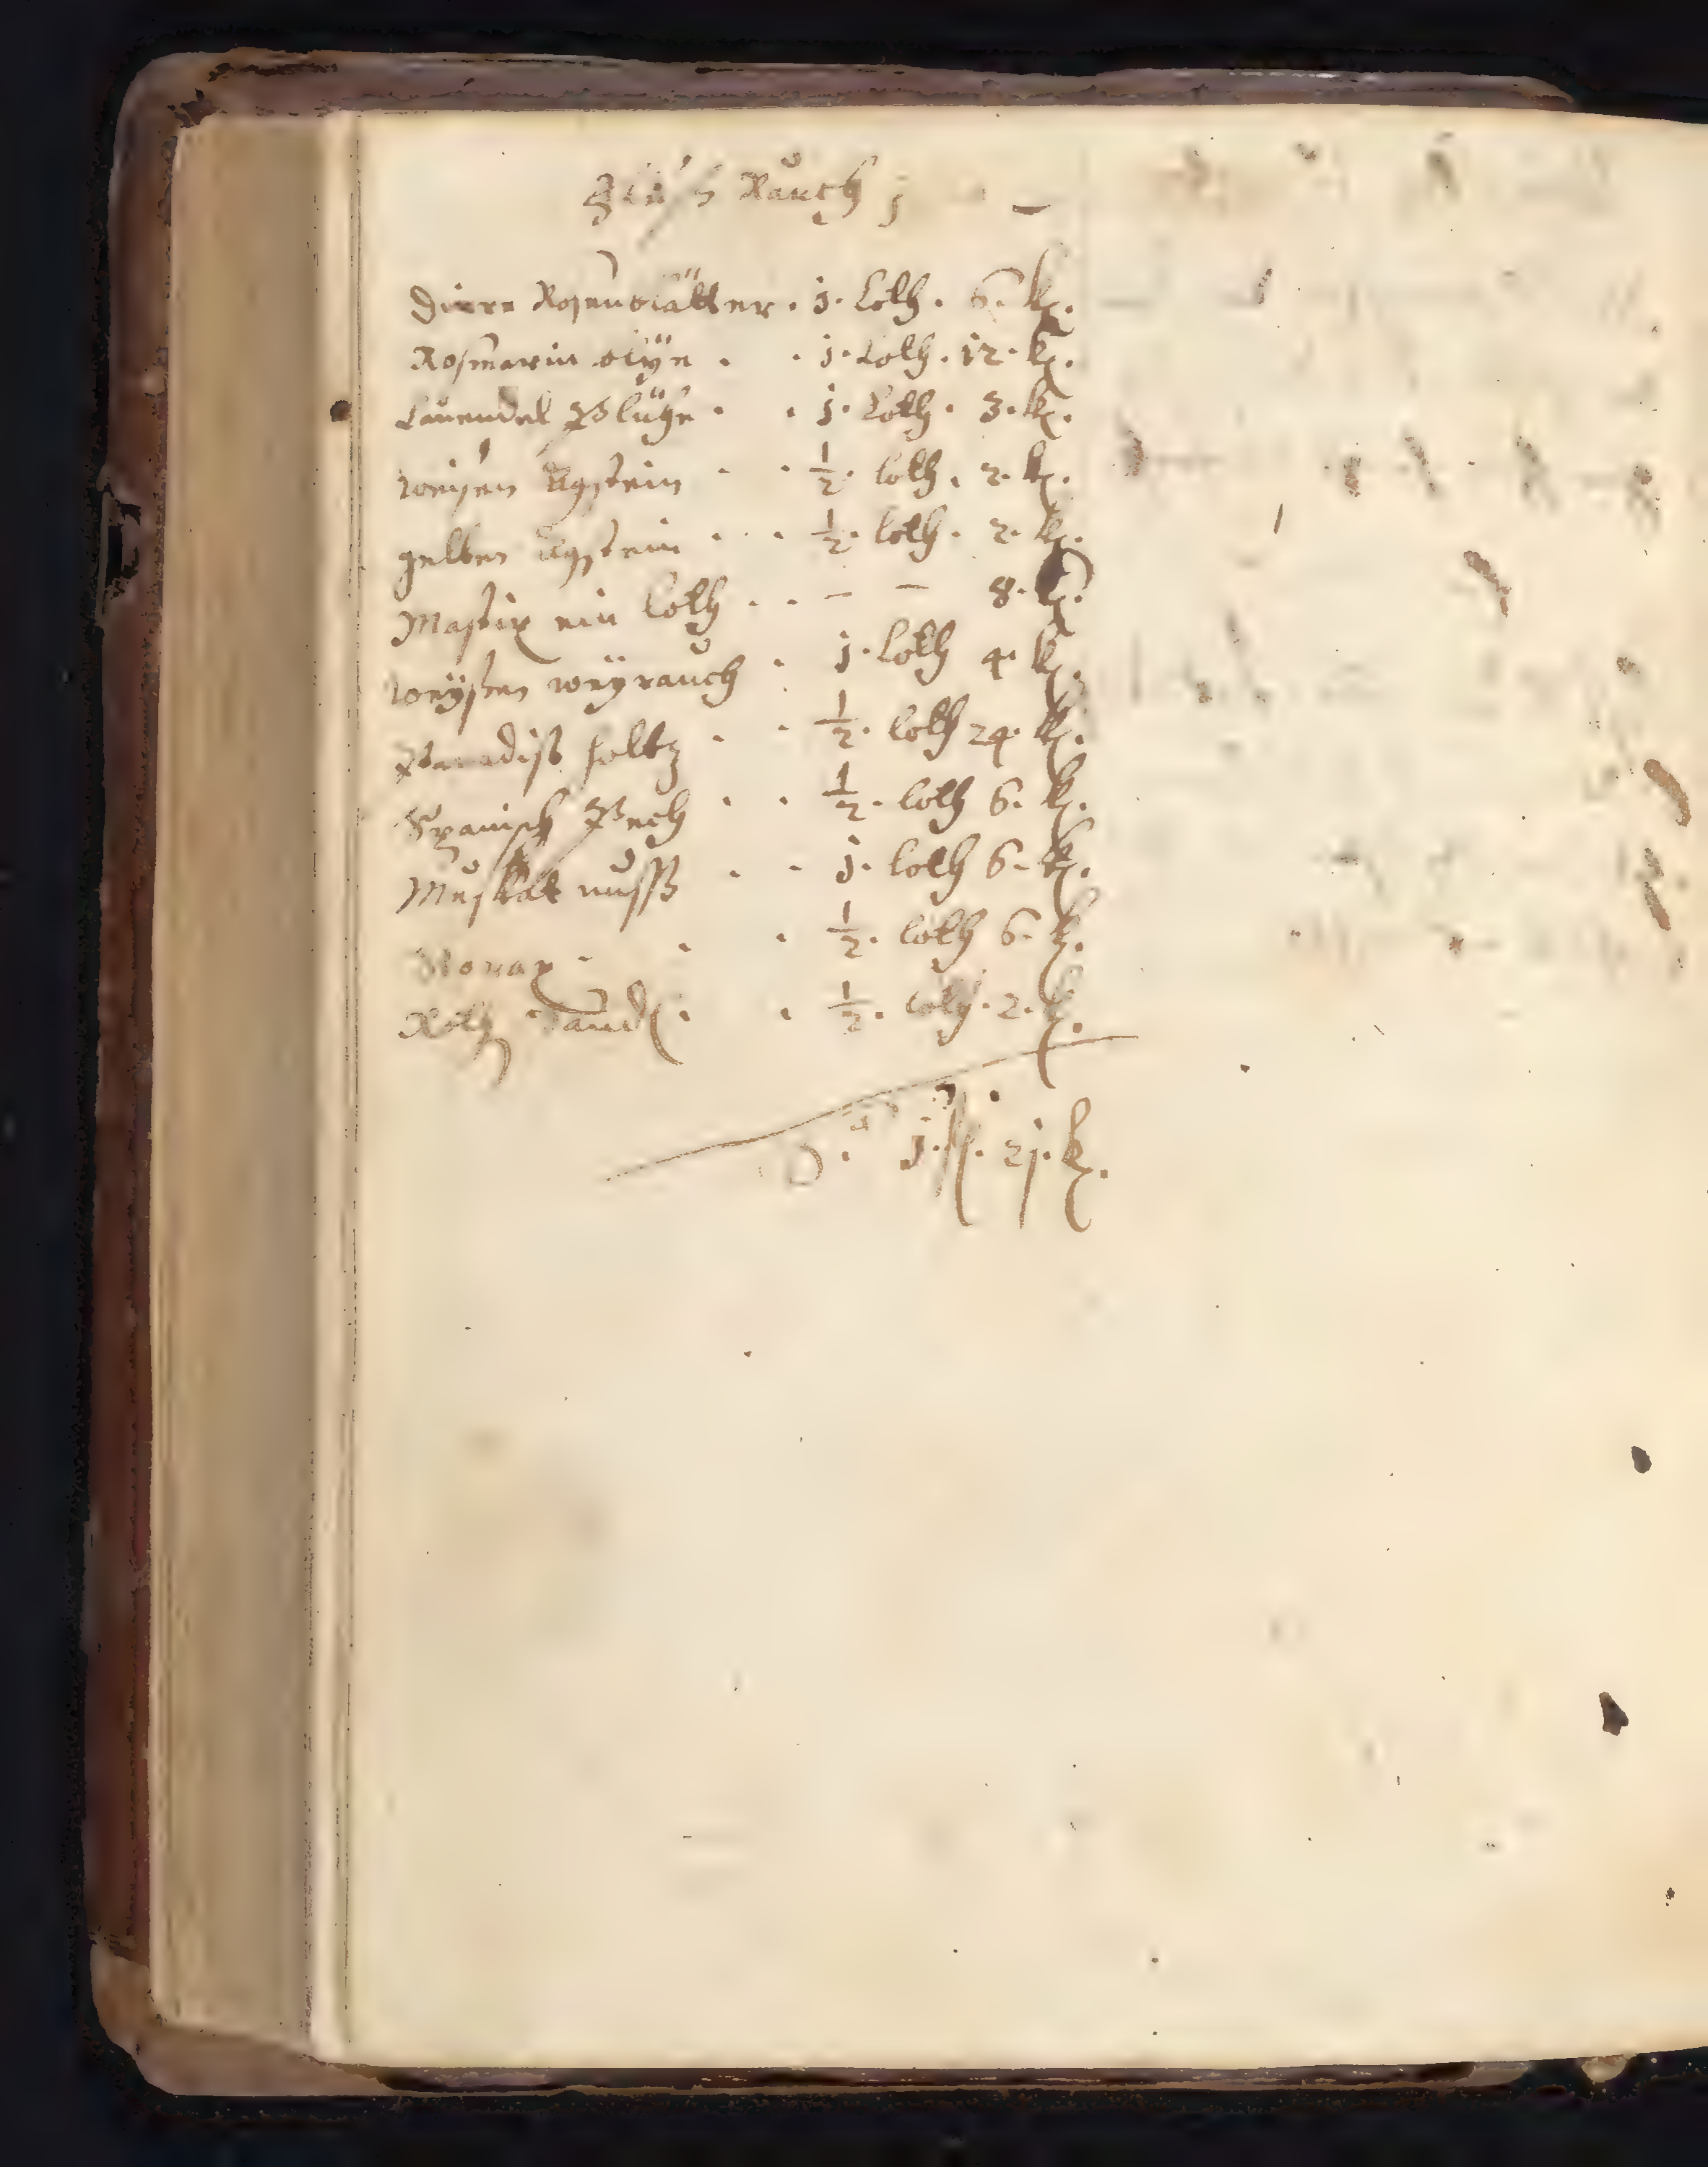 Rauch j
Dürre Rosenblätter . j. Loth . 6. kr.
Rosmarin blye . . j. Loth . 12. kr.
Lauendel Blühe . . j. Loth . 3. kr.
weisen Agstein . . ½. loth . 2. kr.
gelben Agstein . . . ½. loth . 2. kr.
Mastix ein loth . . – – 8. kr.
weyssen weyrauch . j. Loth 4. kr.
Paradiss holtz . . ½. loth 24. kr.
Spanisch Pech . . ½. loth 6. kr.
Muskat nuss . . j. loth 6. kr.
. . . ½. loth 6. kr.
Roth Sandl . . ½. loth . 2. kr.
j. fl. 2j. kr.